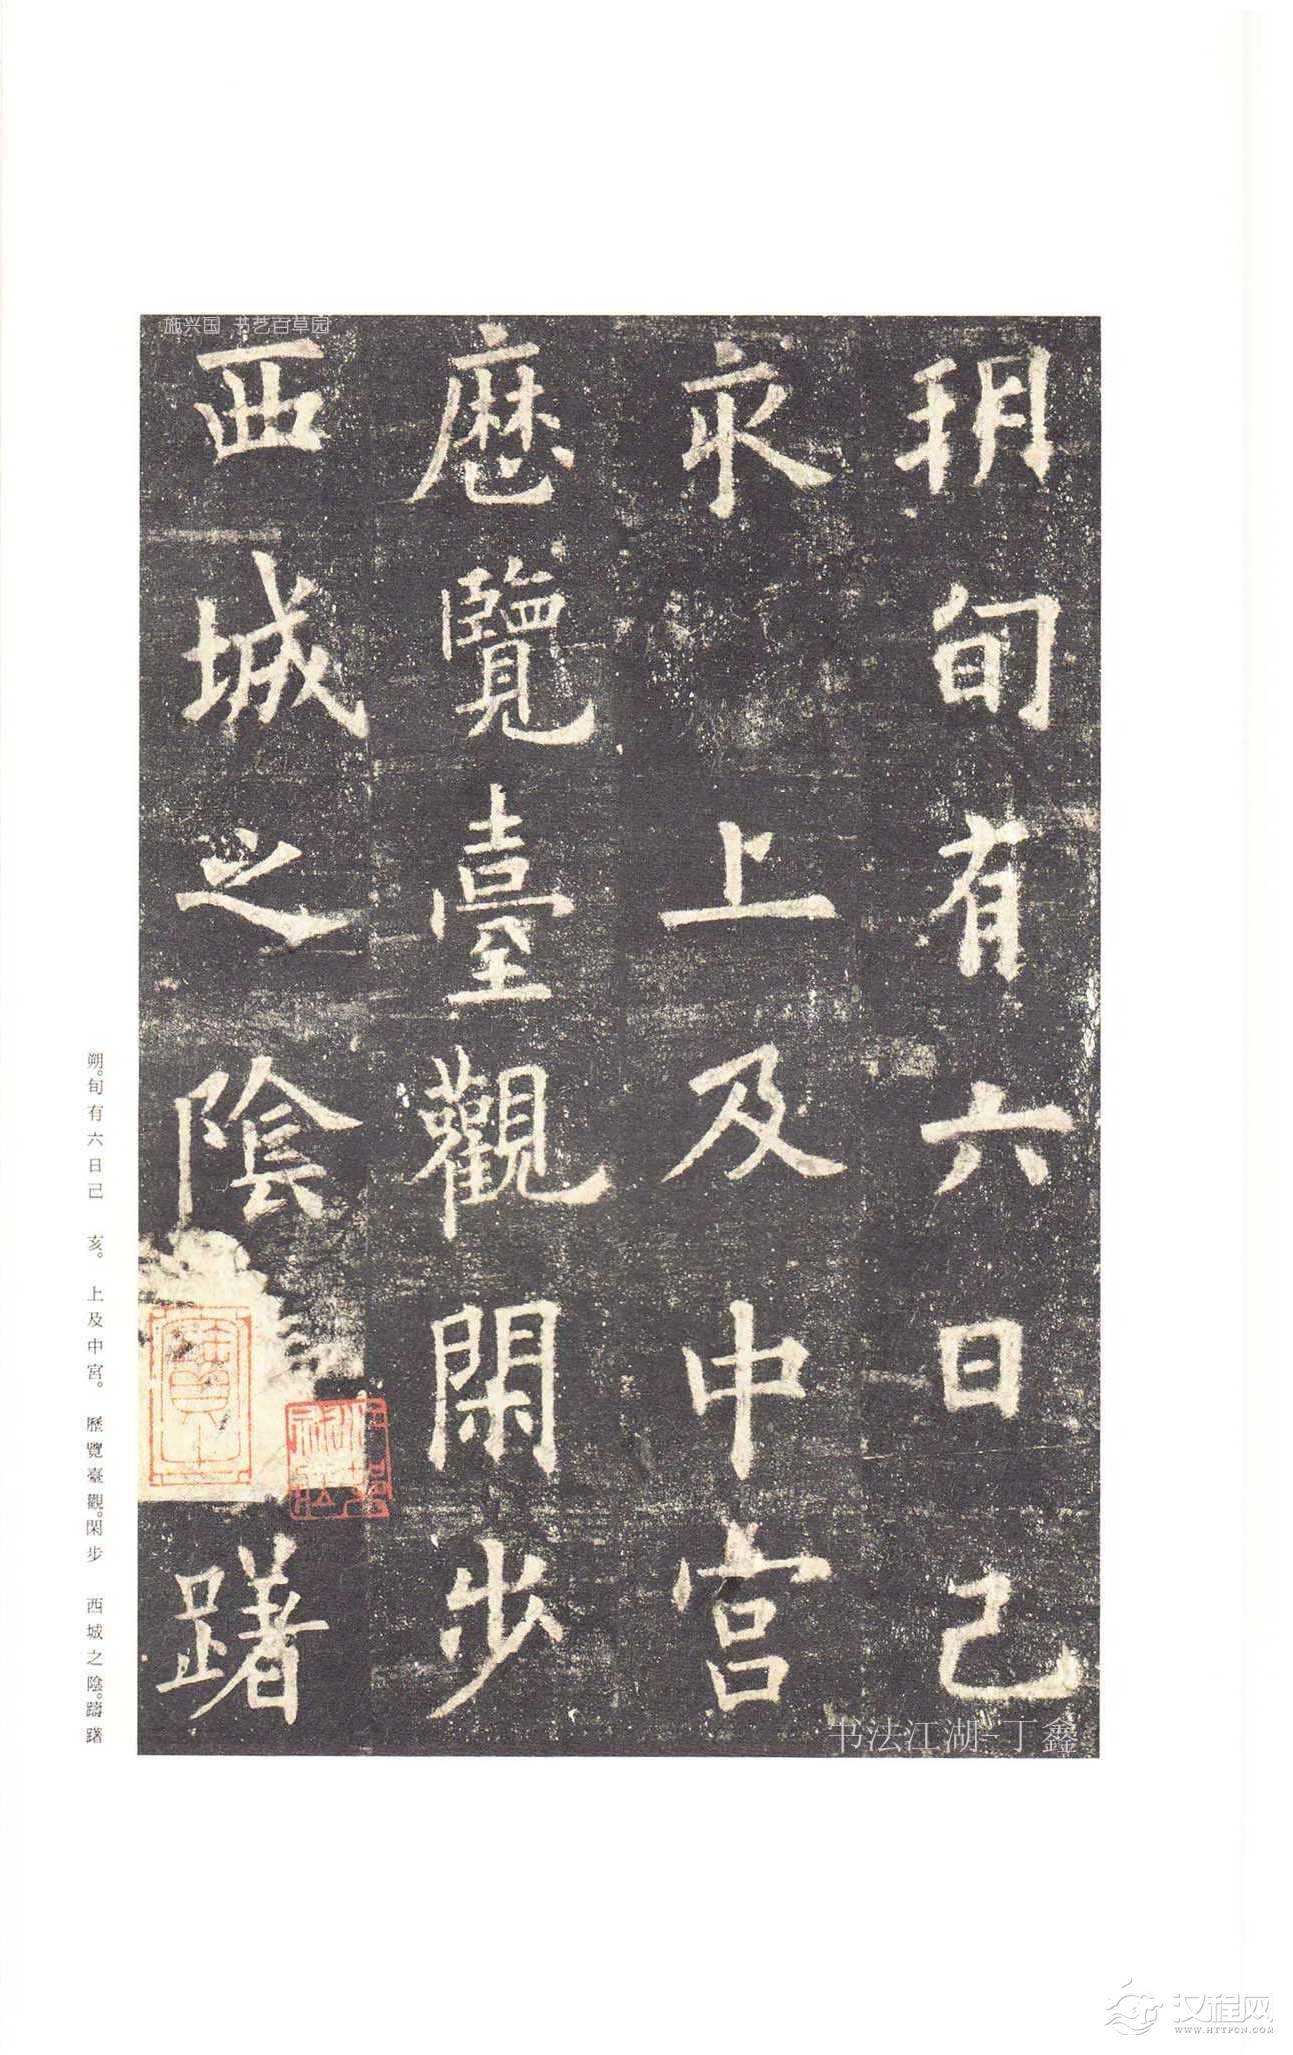 朔旬有六日己
亥上及中宮
歷覽臺觀閑步
西城之陰躇
朔。旬有六日己 亥。 上及中宮。 歷覽臺觀。閑步 西城之陰。躊躇
施兴国 书艺百草园
书法江湖-丁鑫
汉程网
WWW.HTTPCN.COM